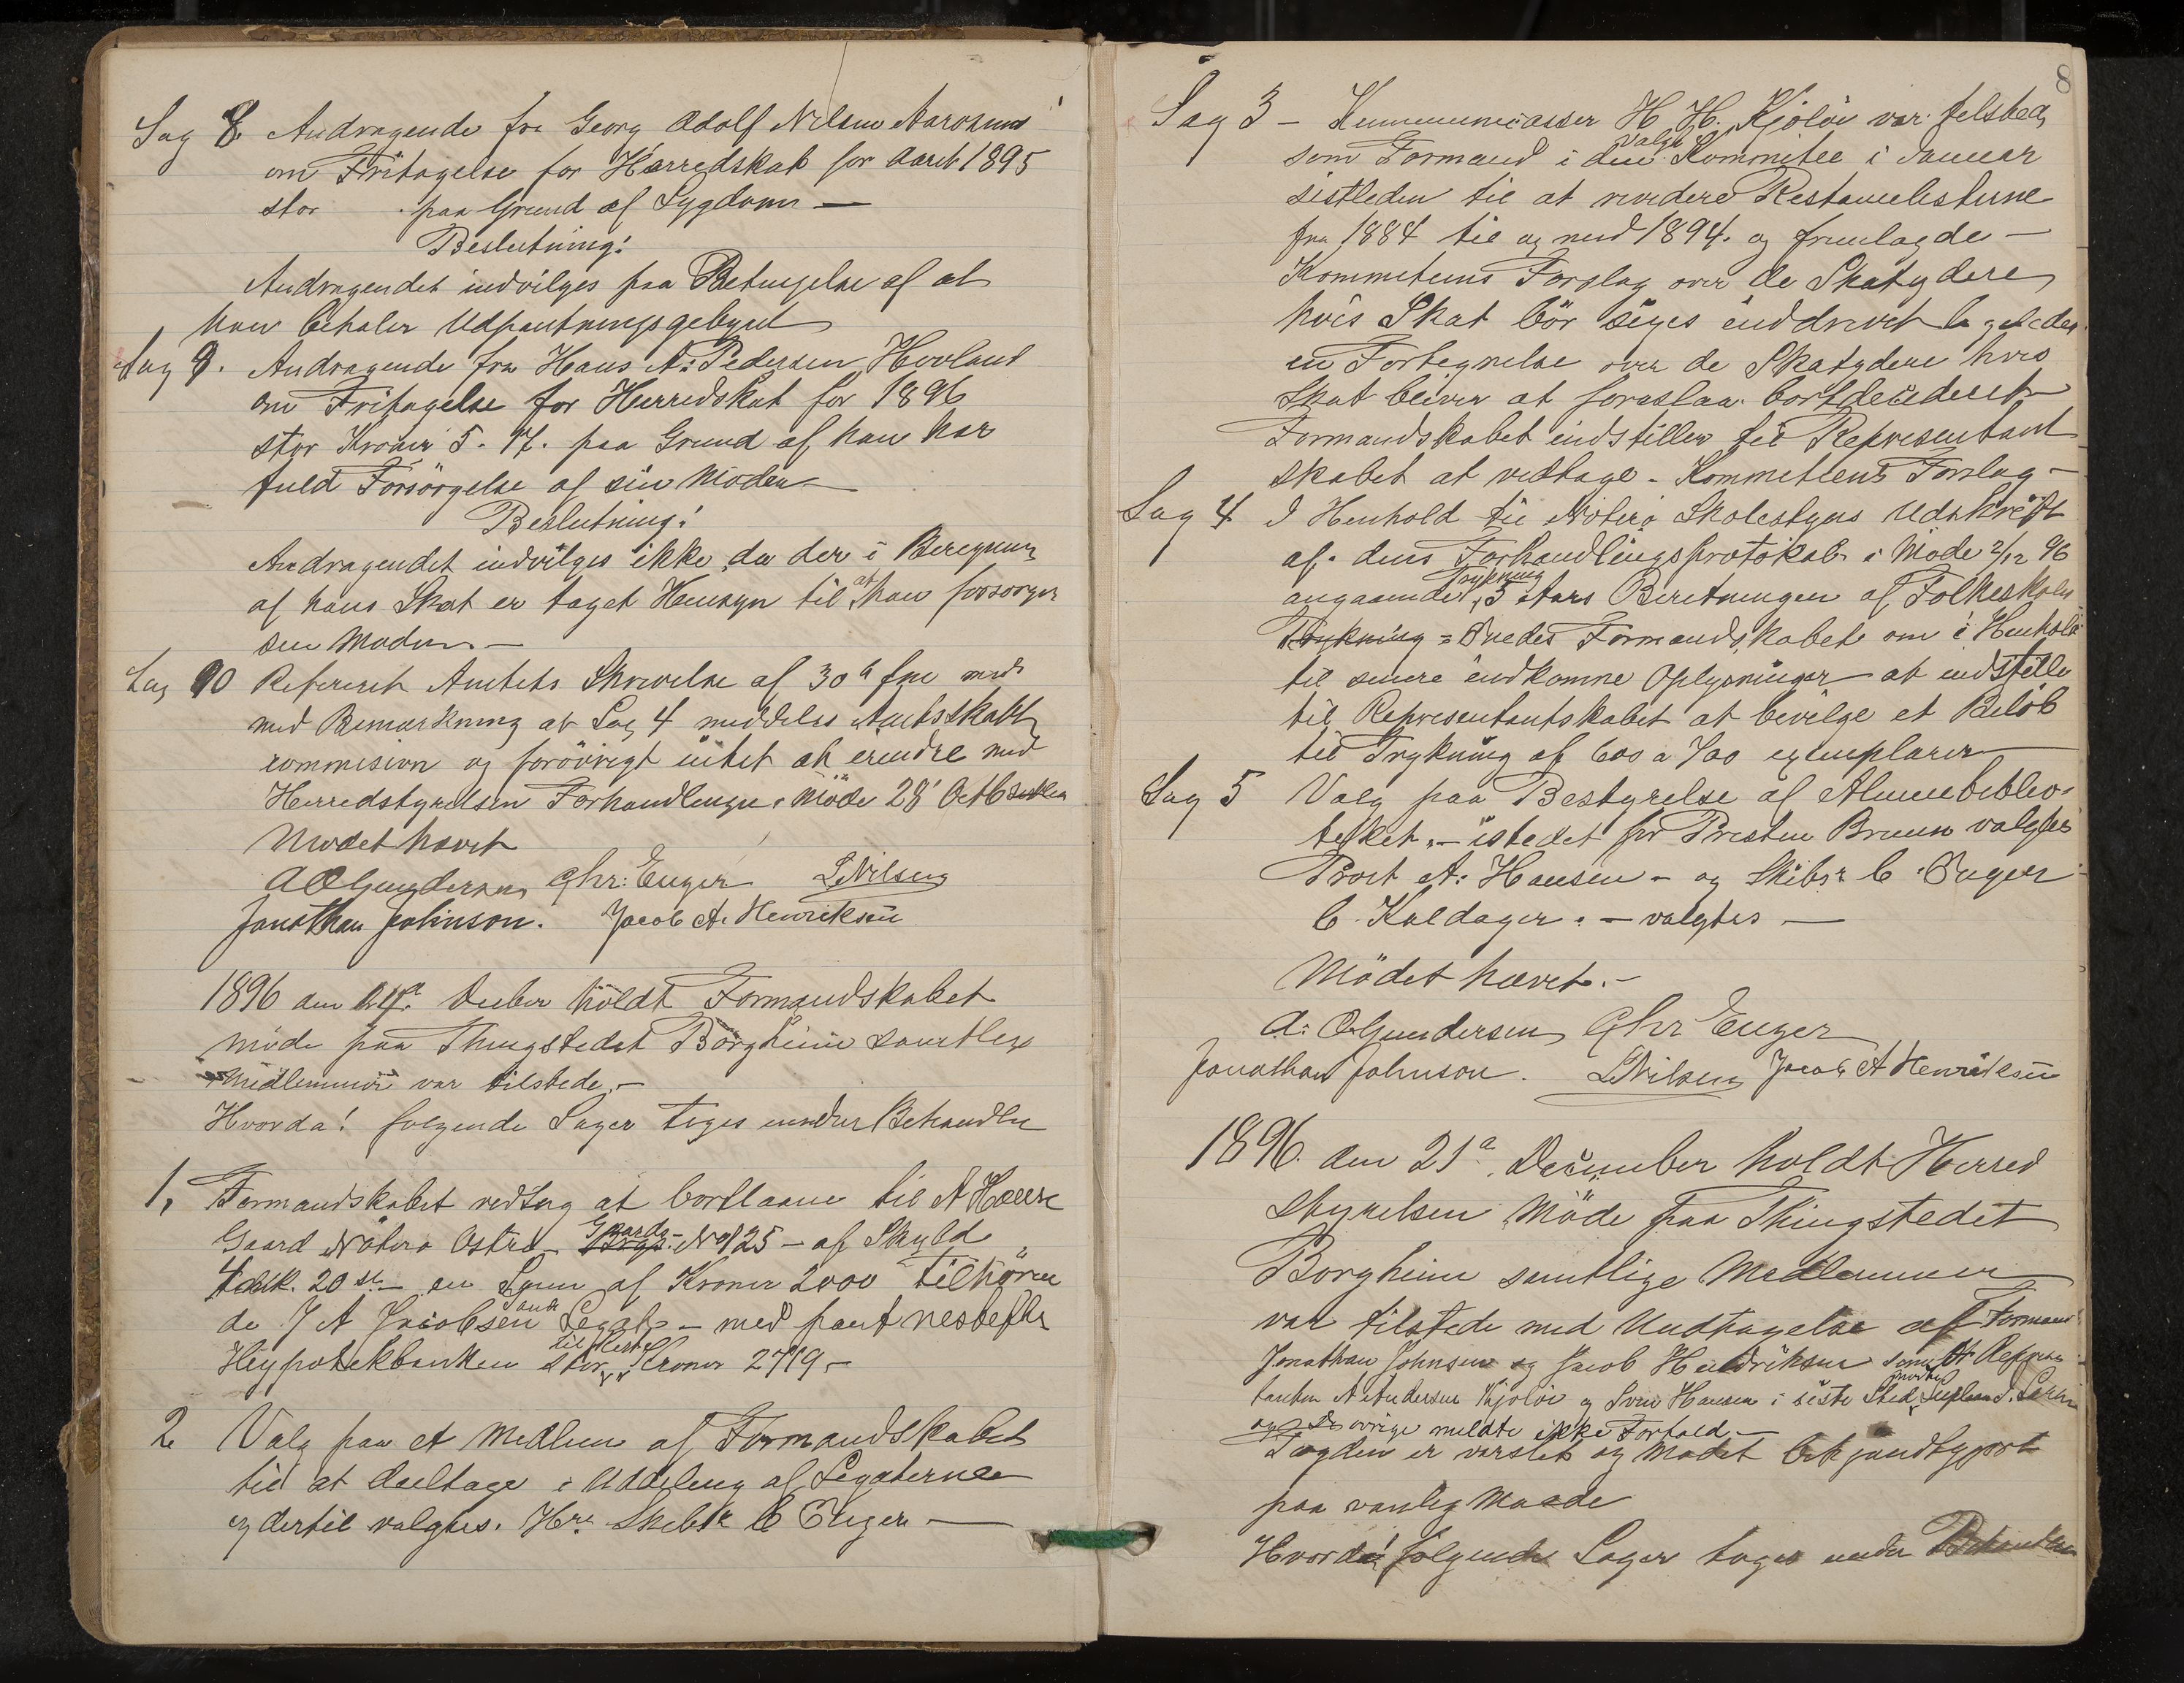 Sag 8 Andragende fra Georg Adolf Nilsen Aarøsund
om Fritagelse for Herredskat for Aaret 1895
stor paa Grund af Sygdom —
Beslutning:
Andragendet indvilges paa Betingelse af at
han betaler Udpantningsgebyret
Sag 9. Andragende fra Hans A. Pedersen Hovland
om Fritagelse for Herredskat for 1896
stor Kroner 5. 17. paa Grund af han har
fuld Forsörgelse af sin Moder —
Beslutning!
Andragendet indvilges ikke da der i Beregning
af hans Skat er taget Hensyn til at han forsorger
sin Moder. —
Sag 10 Refereret Amtets Skrivelse af 30 f m
med Bemærkning at Sag 4 meddeles Amtsskatte
commision og forövrigt intet at erindre med
Herredstyrelsen Forhandlinger i Möde 28 Octb
Mödet hævet
A O Gundersen Chr: Enger L Nilsen
Jonathan Johnson. Jacob A. Henriksen
1896 den Decbr holdt Formandskabet
möde paa Thingstedet Borgheim samtlige
Medlemmer var tilstede. —
Hvorda! folgende Sager toges under Behandln
1, Formandskabet vedtog at bortlaane til A
Gaard Nötterö Ostre Gaards- No 125 — af Skyld
20 — en Sum af Kroner 2000 tilhören
de J A Jacobsen Legat — med pant nestefter
Heypotekbanken stor, til Rest Kroner 2719, —
2 Valg paa et Medlem af Formandskabet
til at deeltage i Uddeling af Legaterne
og dertil valgtes. Hr. Skibsr C Enger —
8
Sag 3 — H. H. Kjölöi var tilsted
som Formand i den valgte Kommitee i Januar
sistleden til at revidere Restancelisterne
fra 1884 til og med 1894. og fremlagde —
Kommiteens Forslag over de Skatydere
hvis Skat bör söges inddrevet ligeledes
en Fortegnelse over de Skatydere hvis
Skat bliver at foreslaa bortdecideret
Formandskabet indstiller til Representant
skabet at vedtage. Kommetteens Forslag —
Sag 4 I Henhold til Nöterö Skolestyres Udskrift
af dens Forhandlingsprotokol i Möde 2/12 96
angaaende Trykning 5 Aars Beretningen af Folkeskolen
Trykning Formandskabet om i Henhold
til senere indkomne Oplysninger at indstille
til Representantskabet at bevilge et Belöb
til Trykning af 600 a 700 exemplarer —
Sag 5 Valg paa Bestyrelse af Almuebiblio-
teket. — istedet for Presten Bruun valgtes
Provst A. Hansen — og Skibsr C. Enger
C. Kaldager. — valgtes —
Mödet hævet. —
A. O Gundersen Chr Enger
Jonathan Johnson. L Nilsen Jacob A Henriksen
1896 den 21 December holdt Herred
styrelsen Möde paa Thingstedet
Borgheim samtlige Medlemmer
var tilstede med Undtagelse af Formand
Jonathan Johnsen og Jacob Hendriksen samt Repræsen
tanten A Andersen Kjölöi og Hansen i siste Sted
og De övrige meldte ikke Forfald. —
Dagden er varslet og Mödet bekjendtgjort
paa vanlig Maade
Hvorda! folgende Sager toges under Behandlen